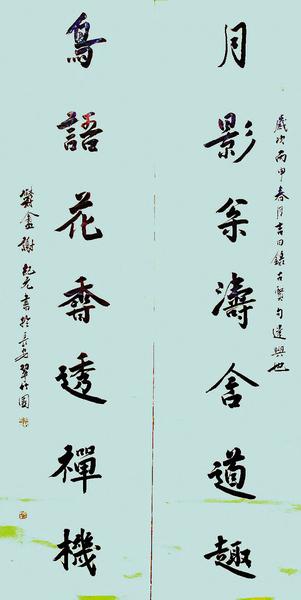 歲次丙申春月吉日錄古賢句遣興也
月影枀濤含道趣
鳥語花香透禪機
盦謝元書於長安翠竹園